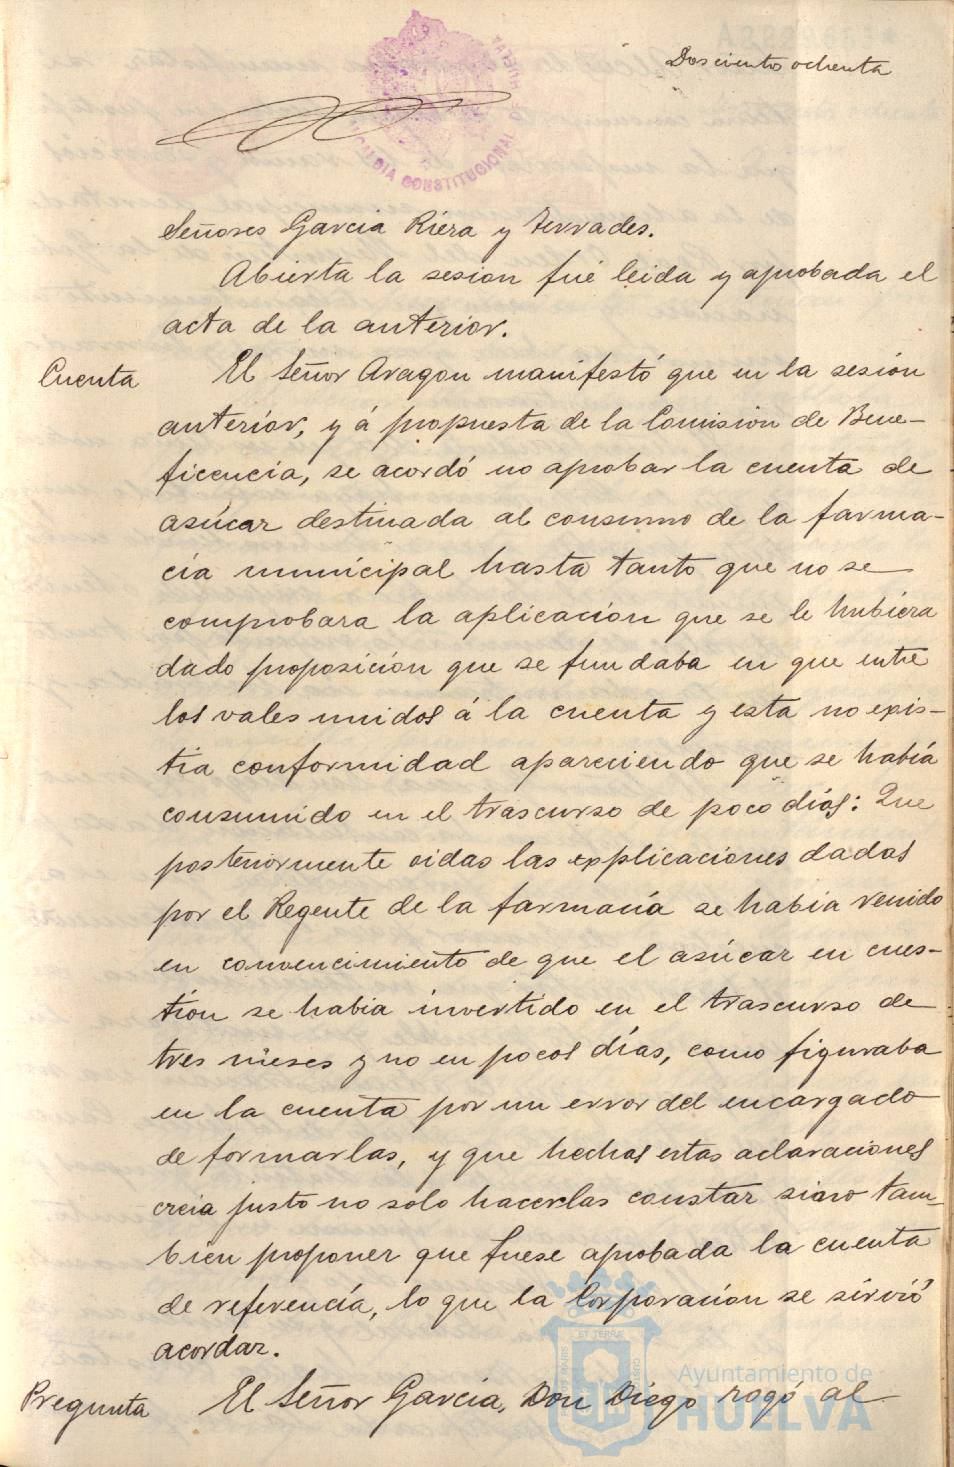 Doscientos ochenta
ALCALDIA CONSTITUCIONAL DE HUELVA
Señores Garcia Riera y Terrades.
Abierta la sesion fué leida y aprobada el
acta de la anterior.
Cuenta El Señor Aragon manifestó que en la sesión
anteriór, y á propuesta de la Comision de Bene-
ficencia, se acordó no aprobar la cuenta de
asúcar destinada al consumo de la farma-
cía municipal hasta tanto que no se
comprobara la aplicación que se le hubiera
dado proposición que se fundaba en que entre
los vales unidos á la cuenta y esta no exis-
tia conformidad apareciendo que se había
consumido en el trascurso de poco días: Que
posteriormente oidas las explicaciones dadas
por el Regente de la farmacía se habia venido
en convencimiento de que el asúcar en cues-
tión se habia invertido en el trascurso de
tres meses y no en pocos días, como figuraba
en la cuenta por un error del encargado
de formarlas, y que hechas estas aclaraciones
creia justo no solo hacerlas constar sino tam-
bien proponer que fuese aprobada la cuenta
de referencía, lo que la Corporación se sirvió
acordar.
Pregunta El Señor García, Don Diego rogó al
Ayuntamiento de
HUELVA